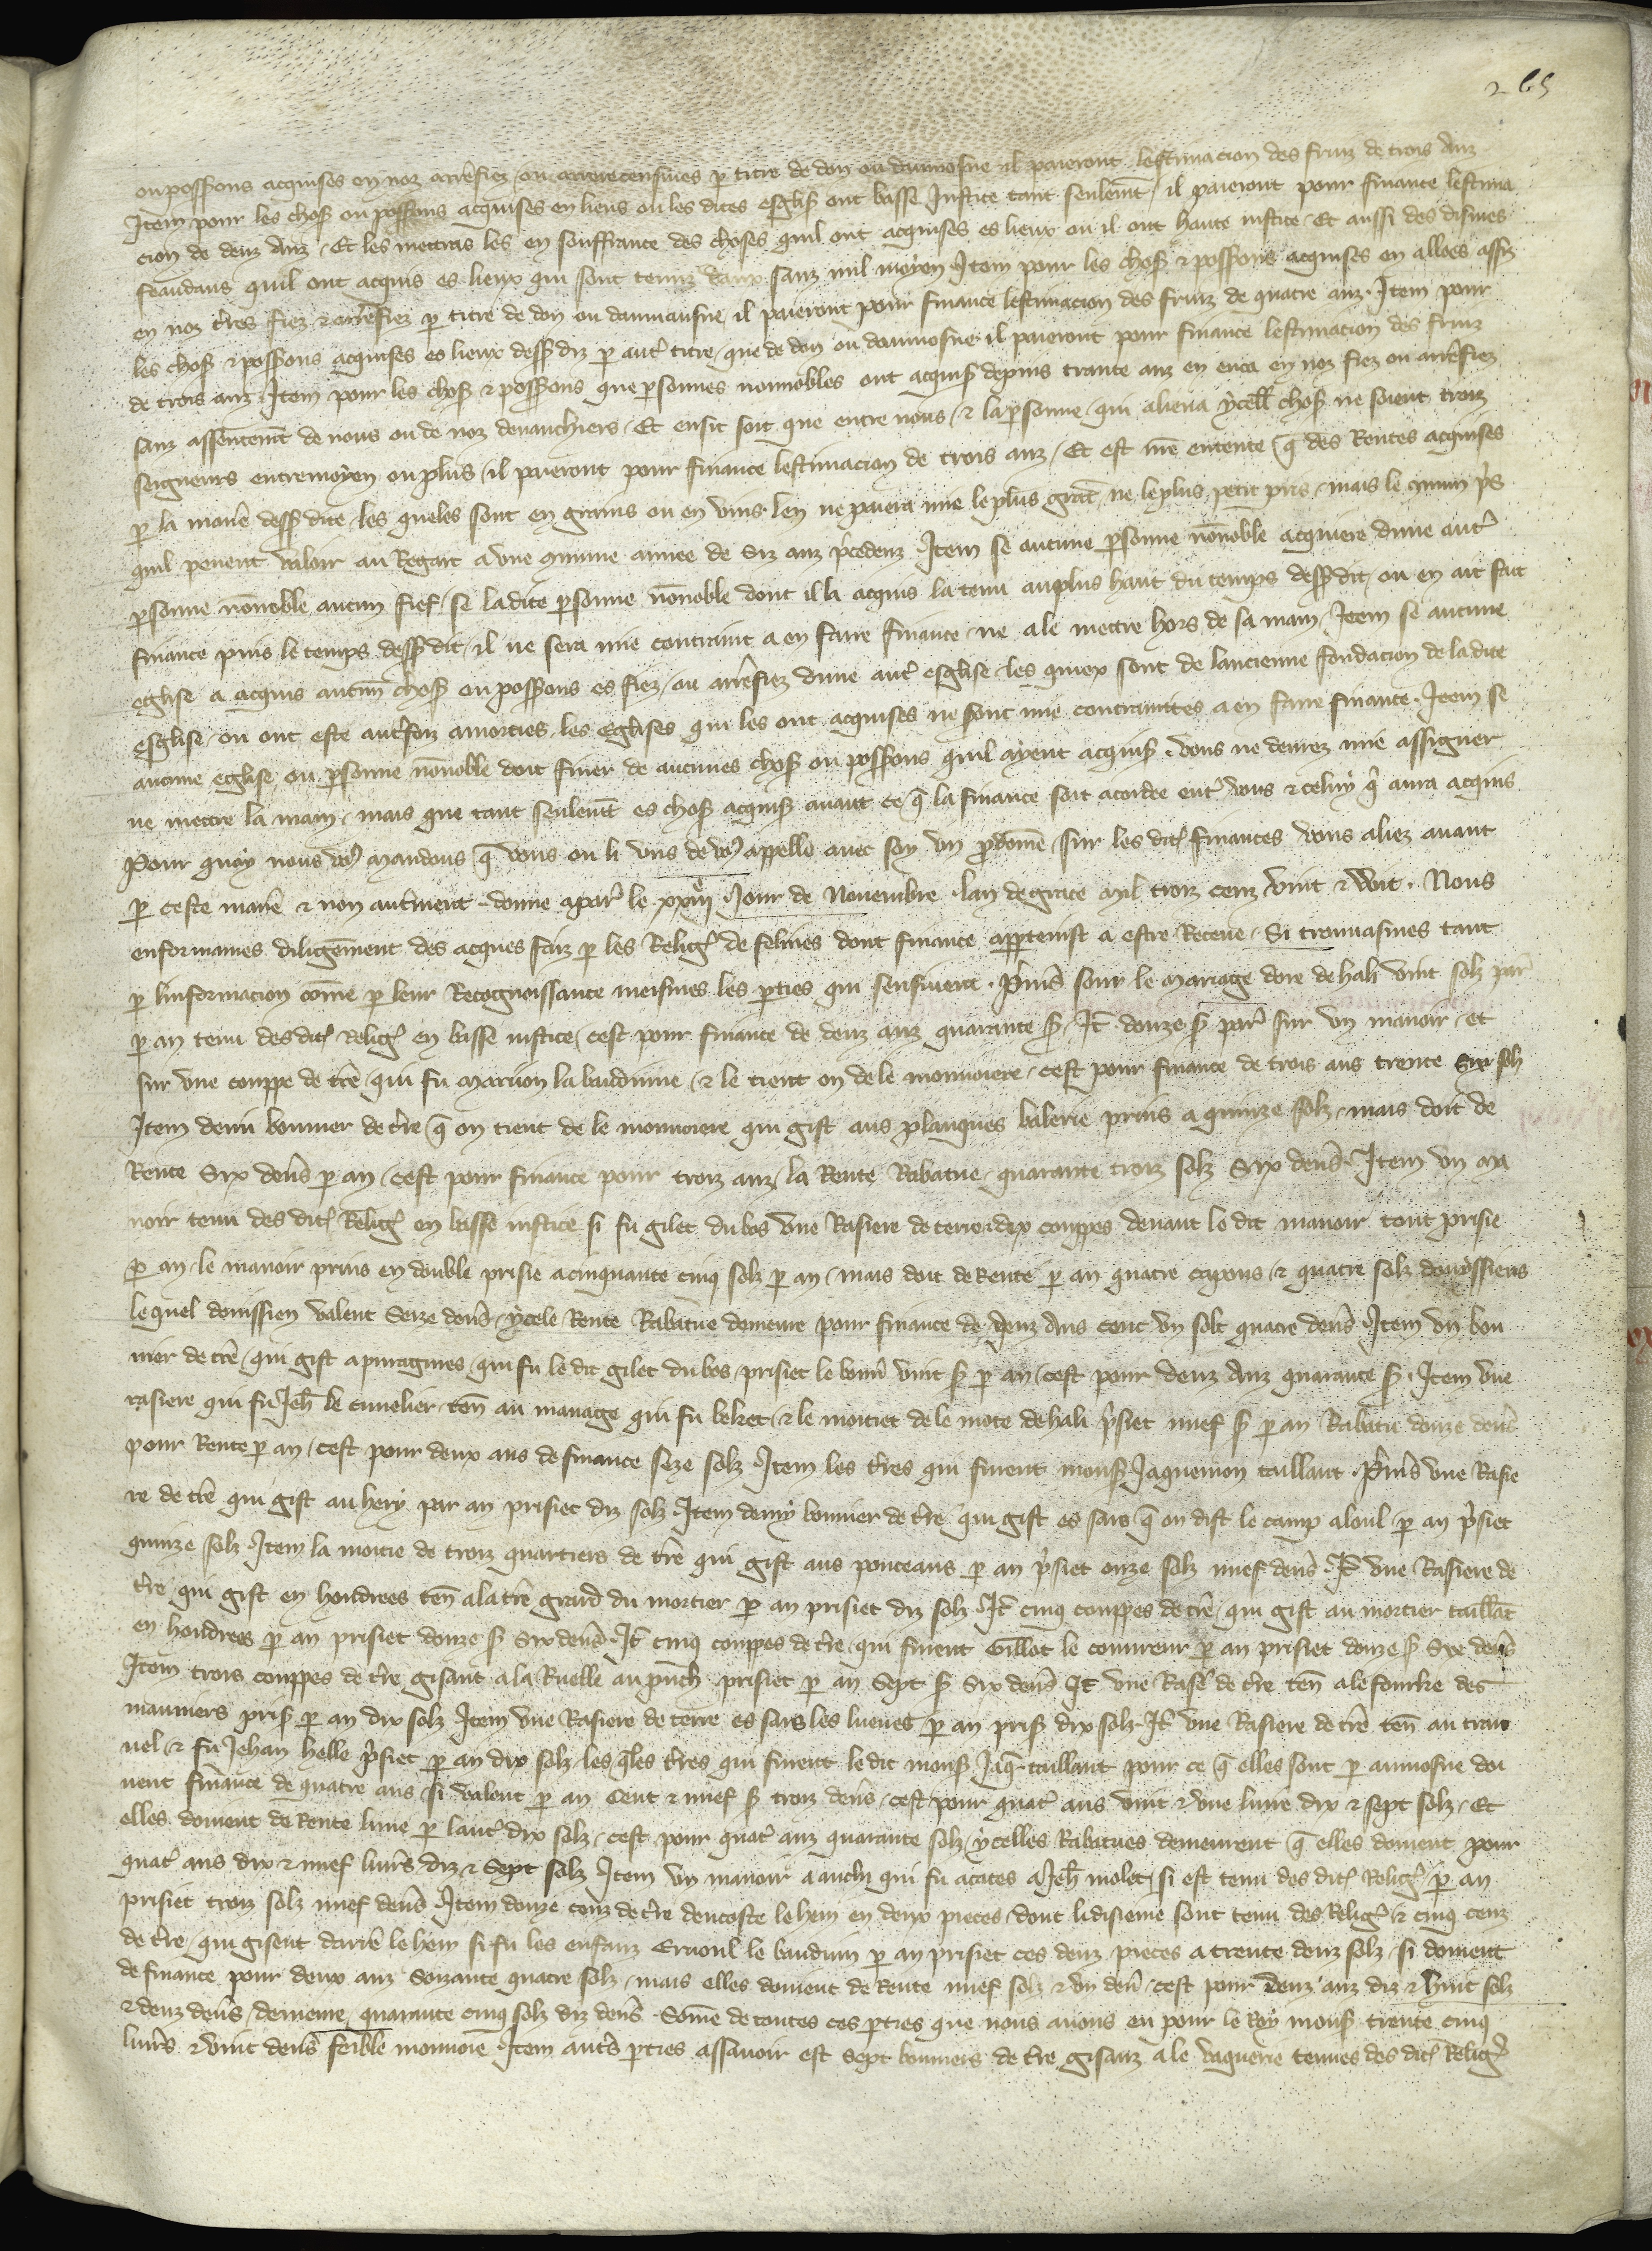 265
ou possessions acquises en noz arrefiez ou arrerecensives p titre de don ou daumosne il paieront lestimacion des fruiz de trois anz
Item pour les choses ou possessions acquises en lieus ou les dites esglises ont basse Justice tant seulemt / il paieront pour finance lestima
cion de deuz anz / Et les mettras les en souffrance des choses quil ont acquises es lieux ou il ont haute iustice / Et aussi des dismes
feaudaus quil ont acquis es lieux qui sont tenuz daux sanz nul moyen Item pour les choses & possessions acquises en alloes assis
en noz tres fiez & arrefiez p titre de don ou daumausne il paieront pour finance lestimacion des fruiz de quatre anz. Item pour
les choses & possessions acquises es lieux dessus diz p aut titre / que de don ou daumosne il paieront pour finance lestimacion des fruiz
de trois anz Item pour les choses & possessions que psonnes nonnobles ont acquis depuis trante anz en enca en noz fiez ou arrefiez
sanz assentemt de nous ou de noz devanchiers / Et ensit soit que entre nous / & la psonne / qui aliena ycell choses ne soient troiz
seigneurs entremoyen ou plus / il paieront pour finance lestimacion de trois anz / Et est nre entente q des Rentes acquises
p la maniere dessus dite / les queles sont en grains ou en vins. len ne paiera mie le plus grant ne le plus petit pris / mais le cmmun pris
quil peuent valoir au Regart a une cmmune annee de Siz anz pcedenz Item se aucune psonne nonnoble acquiere dune aut
psonne nonnoble aucun fief / se ladite psonne nonnoble dont il la acquis la tenu auplus haut du temps dessus dit / ou en ait fait
finance puis le temps dessus dit / il ne sera mie contraint a en faire finance / ne a le mettre hors de sa main / Item se aucune
eglise a acquis aucun choses ou possessions es fiez / ou arrefiez dune aut esglise / les quiex sont de lancienne fondacion de ladite
esglise / ou ont este autrefoiz amorties / les eglises qui les ont acquises ne sont mie contraintes a en faire finance. Item se
aucune eglise ou psonne nonnoble doit finer de aucunes choses ou possessions quil ayent acquis / vous ne devrez mie assigner
ne mettre la main / mais que tant seulemt es choses acquises avant ce q la finance soit acordee ent vous & celuy q aura acquis
Pour quoy nous vos mandons q vous ou li uns de vos appelle avec soy un pdome / sur les dites finances vous aliez avant
p ceste maniere & non autrement. donne a par le xxiiij Jour de Novembre lan de grace mil troiz cenz vint & Voit. Nous
enformames diligemment des acques faiz p les Relig de felines dont finance appteinst a estre Receue / Si trouvasmes tant
p linformacion come p leur Recognoissance meismes les pties qui sensivent. Prims sour le mariage dore de hali vint solz par
p an tenu des dites Relig en basse iustice / cest pour finance de deuz anz quarante s Itm douze s par sur un manoir / et
sur une couppe de tre / qui fu marion la bauduine / & le tient on de le monnoiere / cest pour finance de trois ans trente Six solz
Item demi bonnier de tre q on tient de le monnoiere qui gist aus planques balerie priis a quinze solz / mais doit de
Rente Six deniers p an / cest pour finance pour troiz anz / la Rente Rabatue / quarante troiz solz Six deniers Item un ma
noir tenu des dites Relig en basse iustice si fu gilet du bos une Rasiere de terre dix couppes devant le dit manoir tout prisie
p an / le manoir priis en double prisie a cinquante cinq solz p an / mais doit de Rente p an quatre capons & quatre solz douyssiens
le quel douissien valent Seize deniers / ycele Rente Rabatue demeure pour finance de deuz ans cent un solt quatre deniers Item un bon
nier de tre / qui gist a puvagnies / qui fu le dit gilet du bos / prisiet le bonnier vint s p an / cest pour deuz anz quarante s. Item une
rasiere qui fu Jeh le cuvelier ten au manage qui fu leket / & le moitiet de le mote de hali prisiet nuef s p an Rabatu douze deniers
pour Rente p an / cest pour deux ans de finance seze solz Item les tres qui furent mons Jaquemon taillant. Prims une Rasie
re de tre qui gist au hery par an prisiet diz solz Item demy bonnier de tre qui gist es sars q on dist le camp aloul p an prisiet
quinze solz Item la moitie de troiz quartiers de tre qui gist aus ponceaus p an prisiet onze solz nuef deniers. It une Rasiere de
tre qui gist en hondrees ten a la tre girard du mortier p an prisiet diz solz It cinq couppes de tre / qui gist au mortier taillat
en hondrees p an prisiet douze s Six deniers It cinq couppes de tre / qui furent Gillot le couvreur p an prisiet douze s Six deniers
Item trois couppes de tre gisant a la Ruelle au punch prisiet p an Sept s Six deniers It une Rasiere de tre ten a le fourke des
mauniers pris p an dix solz Item une Rasiere de terre es sars les lueves p an pris dix solz It une Rasiere de tre ten au trau
vel & fu Jehan helle prisiet p an dix solz / les qles tres qui furent le dit mons Jaq taillant pour ce q elles sont p aumosne doi
vent finance de quatre ans / si valent p an Cent & nuef s troiz deniers / cest pour quat ans vint & une livre dix & sept solz / Et
elles doivent de Rente lune p laut dix solz / cest pour quat anz quarante solz / ycelles Rabatues demeurent q elles doivent pour
quat ans dix & nuef livres diz & Sept solz Item un manoir a auchi qui fu acates a Jeh molet / si est tenu des dites Relig p an
prisiet troiz solz nuef deniers Item douze cenz de tre dencoste le hem en deux pieces / dont li disieme sont tenu des Relig & cinq cenz
de tre / qui gisent darrie le hem si fu les enfanz Ernoul le bauduin p an prisiet ces deuz pieces a trente deuz solz / si doivent
de finance pour deux anz Soizante quatre solz / mais elles doivent de Rente nuef solz & un denier / cest pour deuz anz diz & huit solz
& deuz deniers / demeure quarante cinq solz diz deniers. Some de toutes ces pties que nous avons eu pour le Roy mons trente cinq
livres & vint deniers feible monnoie Item autres pties assavoir est Sept bonniers de tre gisanz a le vaquerie tenues des dites Relig